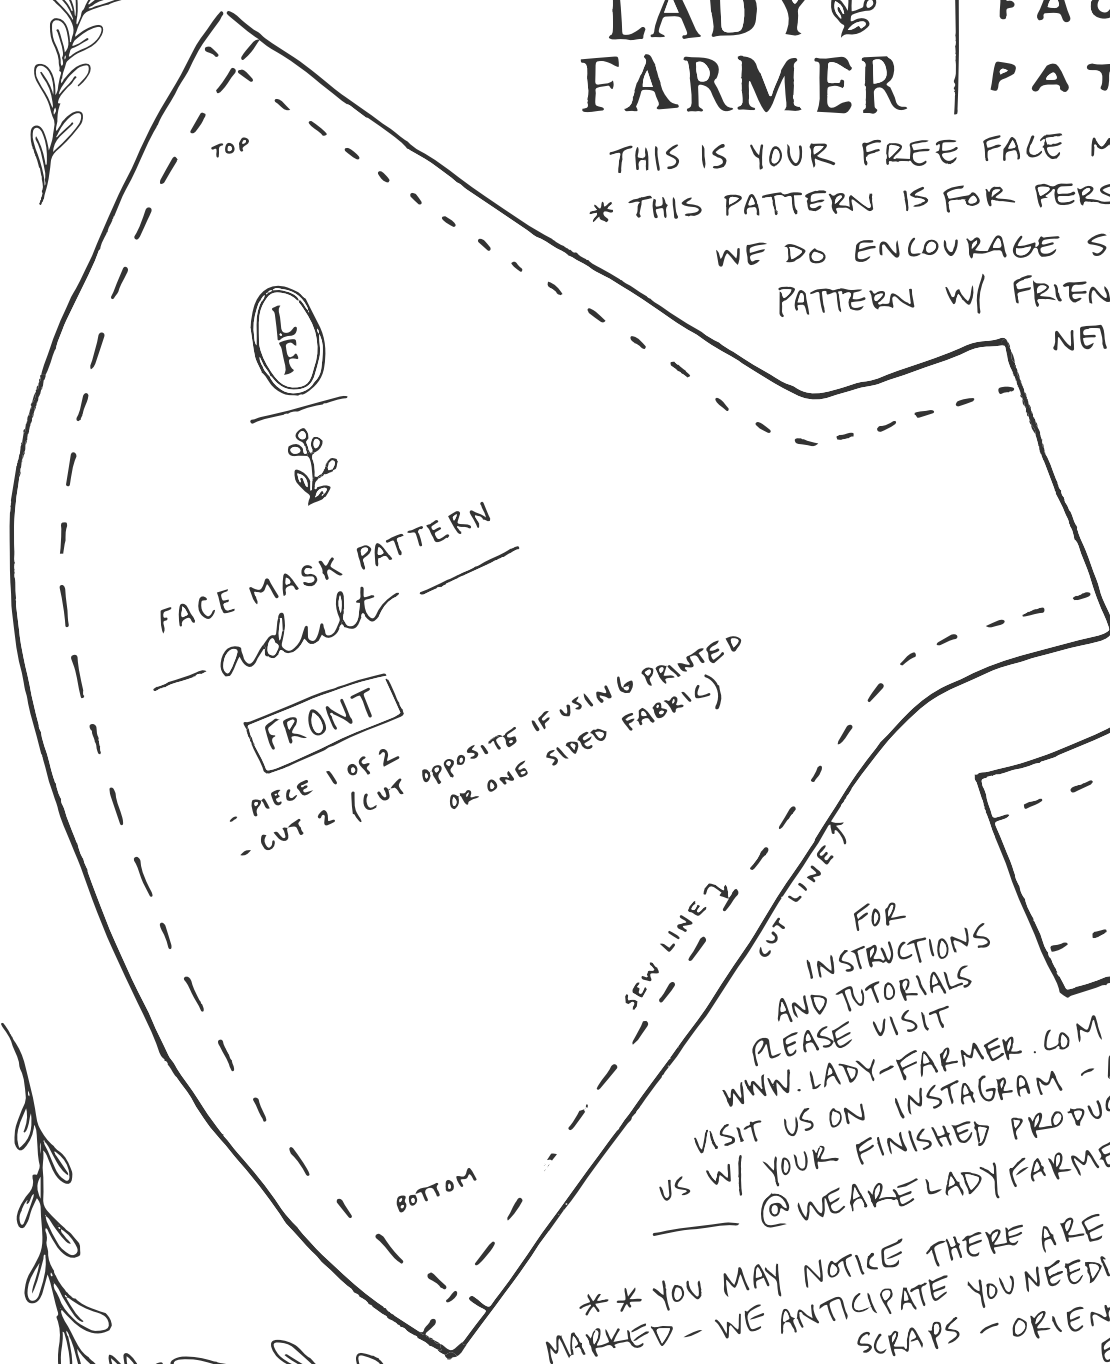 LADY
FARMER
PAT
THIS IS YOUR FREE FACE M
* THIS PATTERN IS FOR PERS
WE DO ENCOURAGE S
PATTERN W/ FRIEN
NET
TOP
L
F
FACE MASK PATTERN
— adult —
FRONT
- PIECE 1 OF 2
- CUT 2 (CUT OPPOSITE IF USING PRINTED
OR ONE SIDED FABRIC)
SEW LINE
CUT LINE
BOTTOM
FOR
INSTRUCTIONS
AND TUTORIALS
PLEASE VISIT
WWW.LADY-FARMER.COM
VISIT US ON INSTAGRAM -
US W/ YOUR FINISHED PRODUC
— @WEARELADYFARME
** YOU MAY NOTICE THERE ARE
MARKED - WE ANTICIPATE YOU NEEDI
SCRAPS - ORIEN